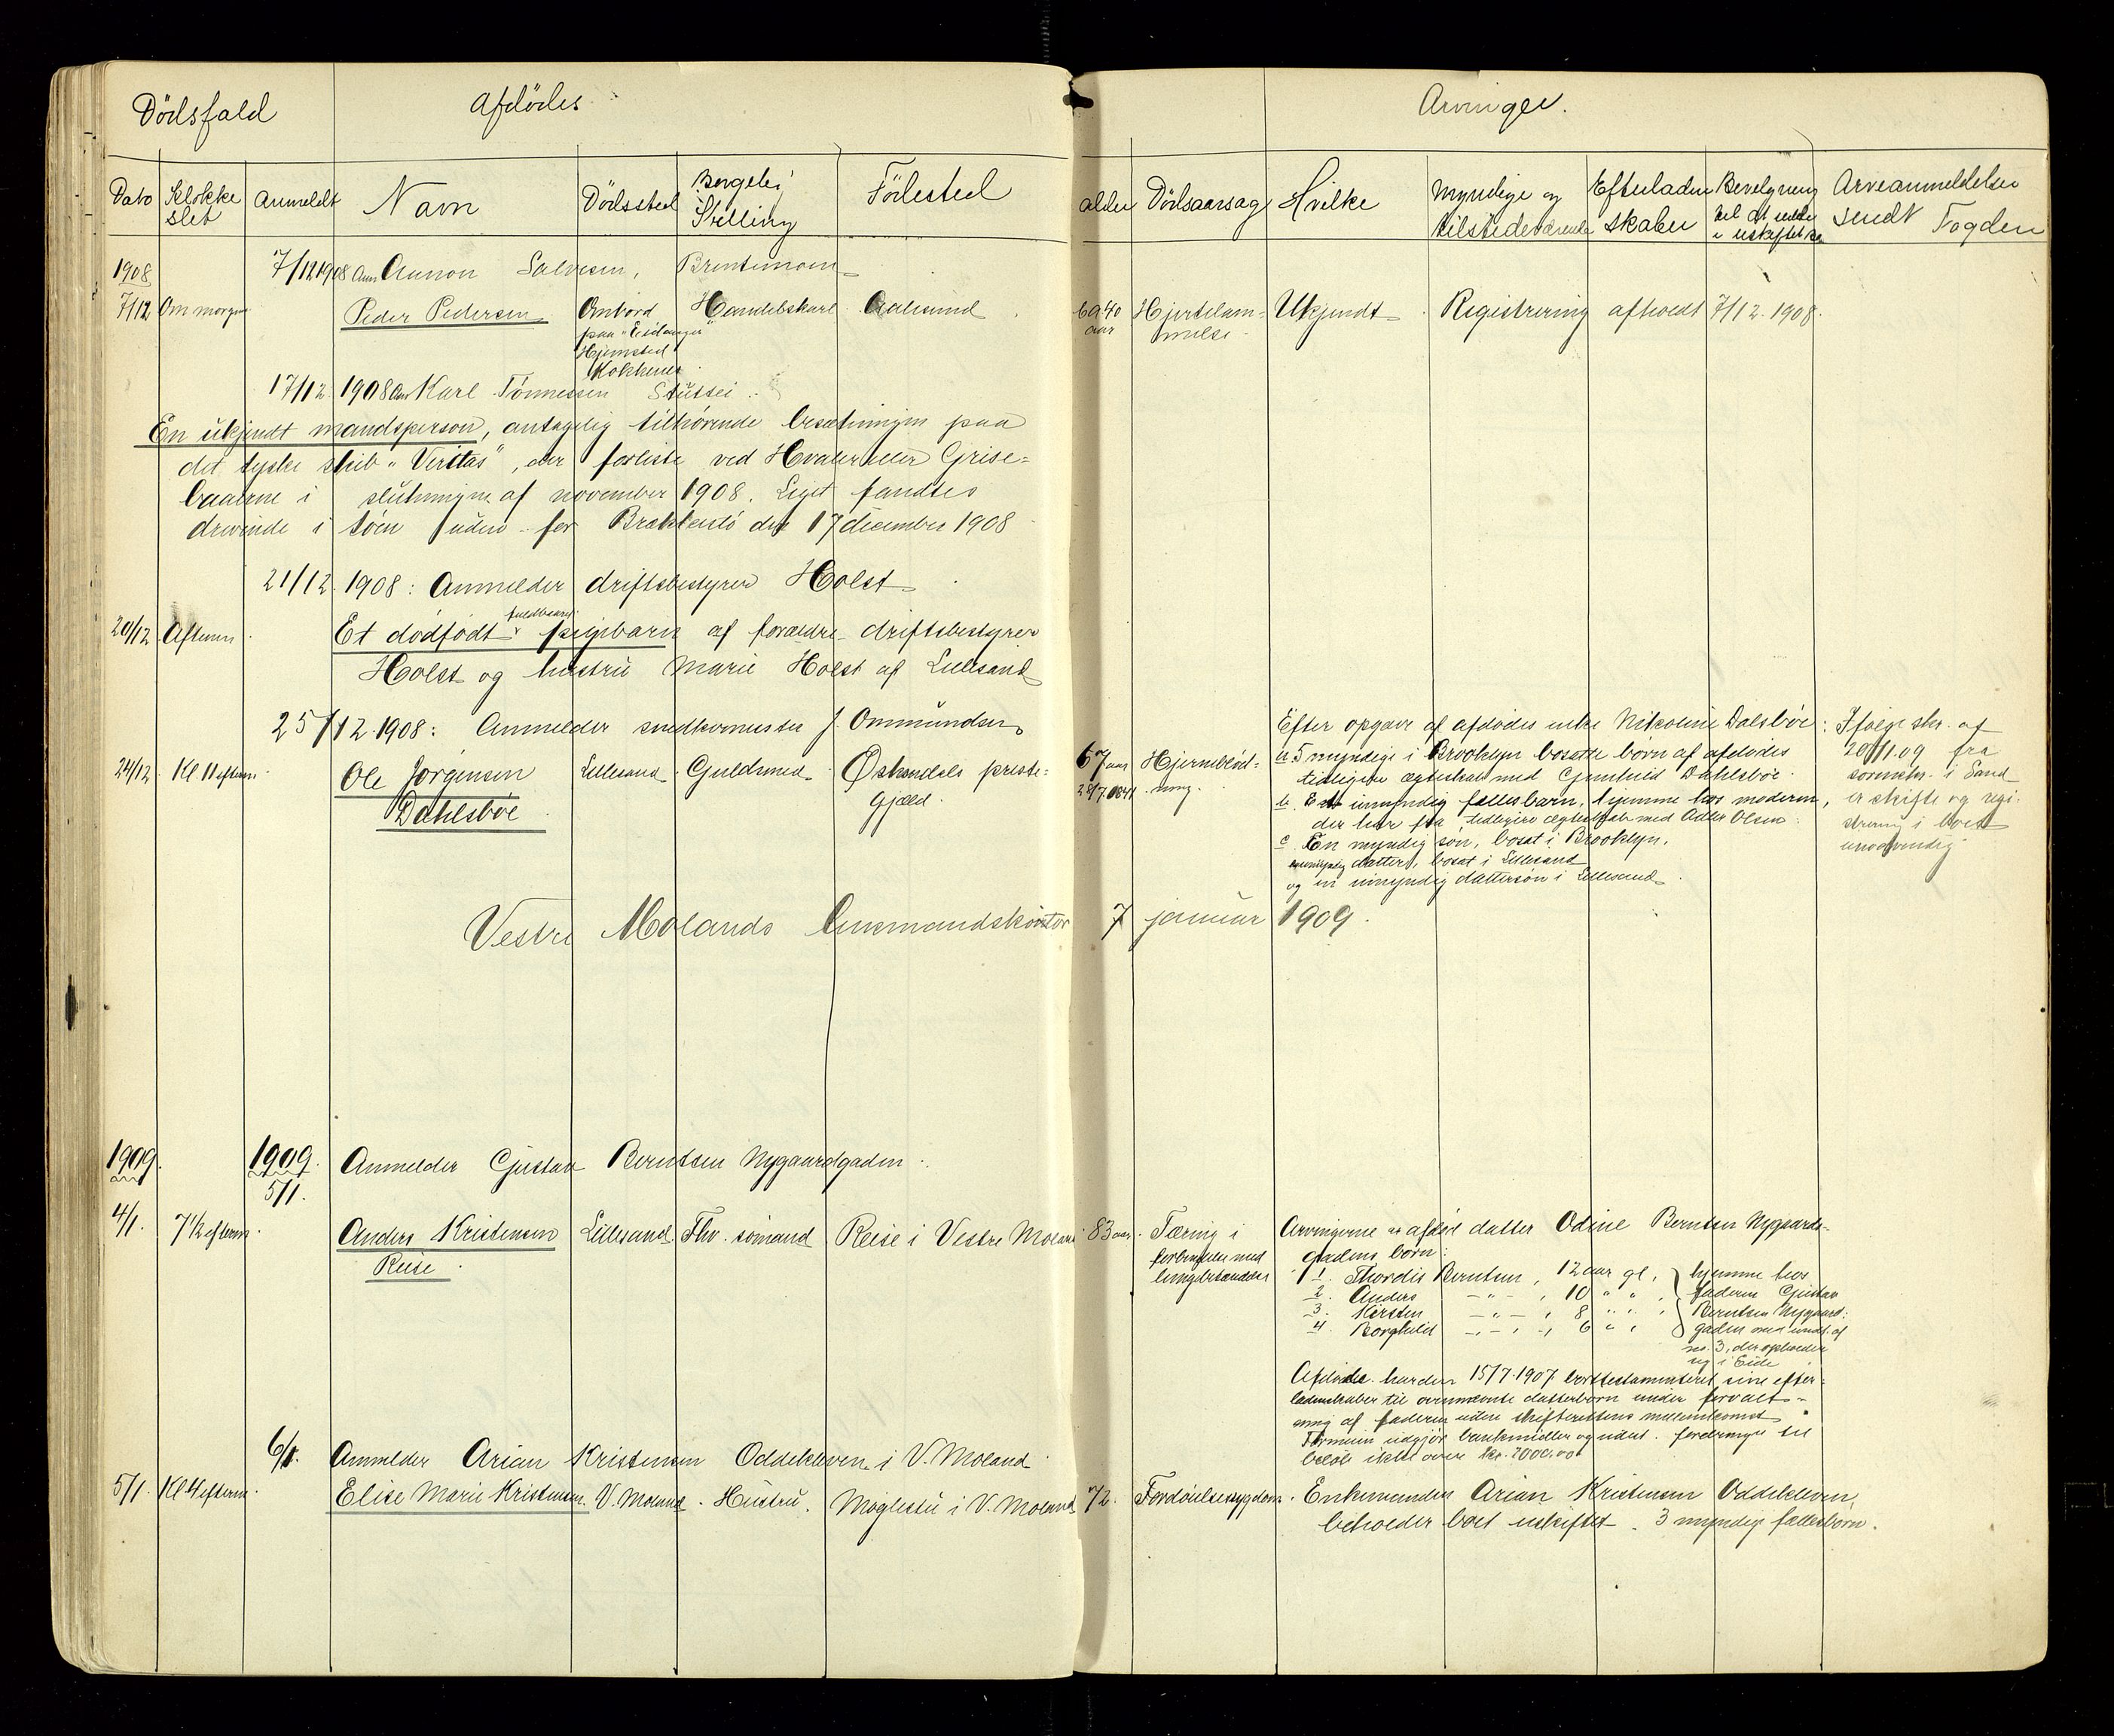 Dödsfald
Afdödes
Arvinger.
Dato
Klokke
slet
Anmeldt
Navn
Dödssted
Borgelig
Stilling
Födested
alder
Dödsaarsag
Hvilke
Myndige og
tilstedeværende
Efterladen
skaber
Bevilgning
til at sidde
i uskiftet bo
Arveanmeldelse
sendt Fogden
1908
7/12 1908 Anm Aanon Salvesen, Brentemoen
7/12 Om morgen Peder Pedersen Ombord Handelskarl Aalesund ca 40 Hjertelam- Ukjendt Registrering afholdt 7/12 1908.
paa "Eidanger"
aar melse
Hjemsted
Kokkenes
17/12 1908 Anm Karl Tönnessen
En ukjendt mandsperson, antagelig tilhørende besætningen paa
det tyske skib "Veritas", der forliste ved Hvaler eller Grise-
baaerne i slutningen af november 1908. Liget fandtes
drivende i söen uden for Brækkestö den 17 december 1908
21/12 1908: Anmelder driftsbestyrer Holst
20/12 Afteren Et dödfödt fuldbaaret pigebarn af forældre driftsbestyrer
Holst og hustru Marie Holst af Lillesand
25/12 1908: Anmelder snedkermester J. Ommundsen
24/12 Kl. 11 efterm Ole Jörgensen Lillesand Guldsmed Österdals preste-
Dahlsböe
gjæld.
67 aar Hjerneblöd-
28/7 1841 ning.
Efter opgave af afdödes enke Nikoline Dalsböe:
a 5 myndige i Brooklyn bosatte börn af afdödes
tidligere ægteskab med Gunhild Dahlsböe.
b. Et umyndig fællesbarn, hjemme hos moderen,
der har fra tidligere ægteskab med Adler Olsen:
c. En myndig sön, bosat i Brooklyn.
datter, bosat i Lillesand
og en umyndig dattersön i Lillesand
Ifölge skr. af
20/1 09 fra
sorenskr. i Sand
er skifte og regi-
strering i boet
unödvendig
Vestre Molands Lensmandskontor 7 januar 1909.
1909. 1909. Anmelder Gustav Berntsen Nygaardsgaden
5/1.
4/1. 7 1/2 efterm. Anders Kristensen Lillesand Fhv. sömand Reise i Vestre Moland 83 aar.
Reise
Tæring i
forbindelse med
Arvingerne er afdöd datter Odine Berntsen Nygaards-
gadens börn:
1. Thordis Berntsen, 12 aar gl,
2. Anders -"- , 10 " "
3. Kirsten -"- , 8 " "
4. Borghild -"- , 6 " "
hjemme hos
faderen Gustav
Berntsen Nygaards-
gaden med undt. af
no. 3, der opholder
sig i Eide
Afdöde har den 15/7 1907 borttestamenteret sine efter-
ladenskaber til ovennævnte datterbörn under forvalt-
ning af faderen uden skifterettens mellemkomst
Formuen udgjör bankmidler og udest. fordringer til
belöb ikke over kr. 2000.00
6/1. Anmelder Arian Kristensen Oddekleven i V. Moland
5/1. Kl 4 efterm. Elise Marie Kristensen V. Moland. Hustru. Möglestu i V. Moland 72. Fordöielsessygdom. Enkemanden Arian Kristensen Oddekleven,
beholder boet uskiftet. 3 myndige fællesbörn.